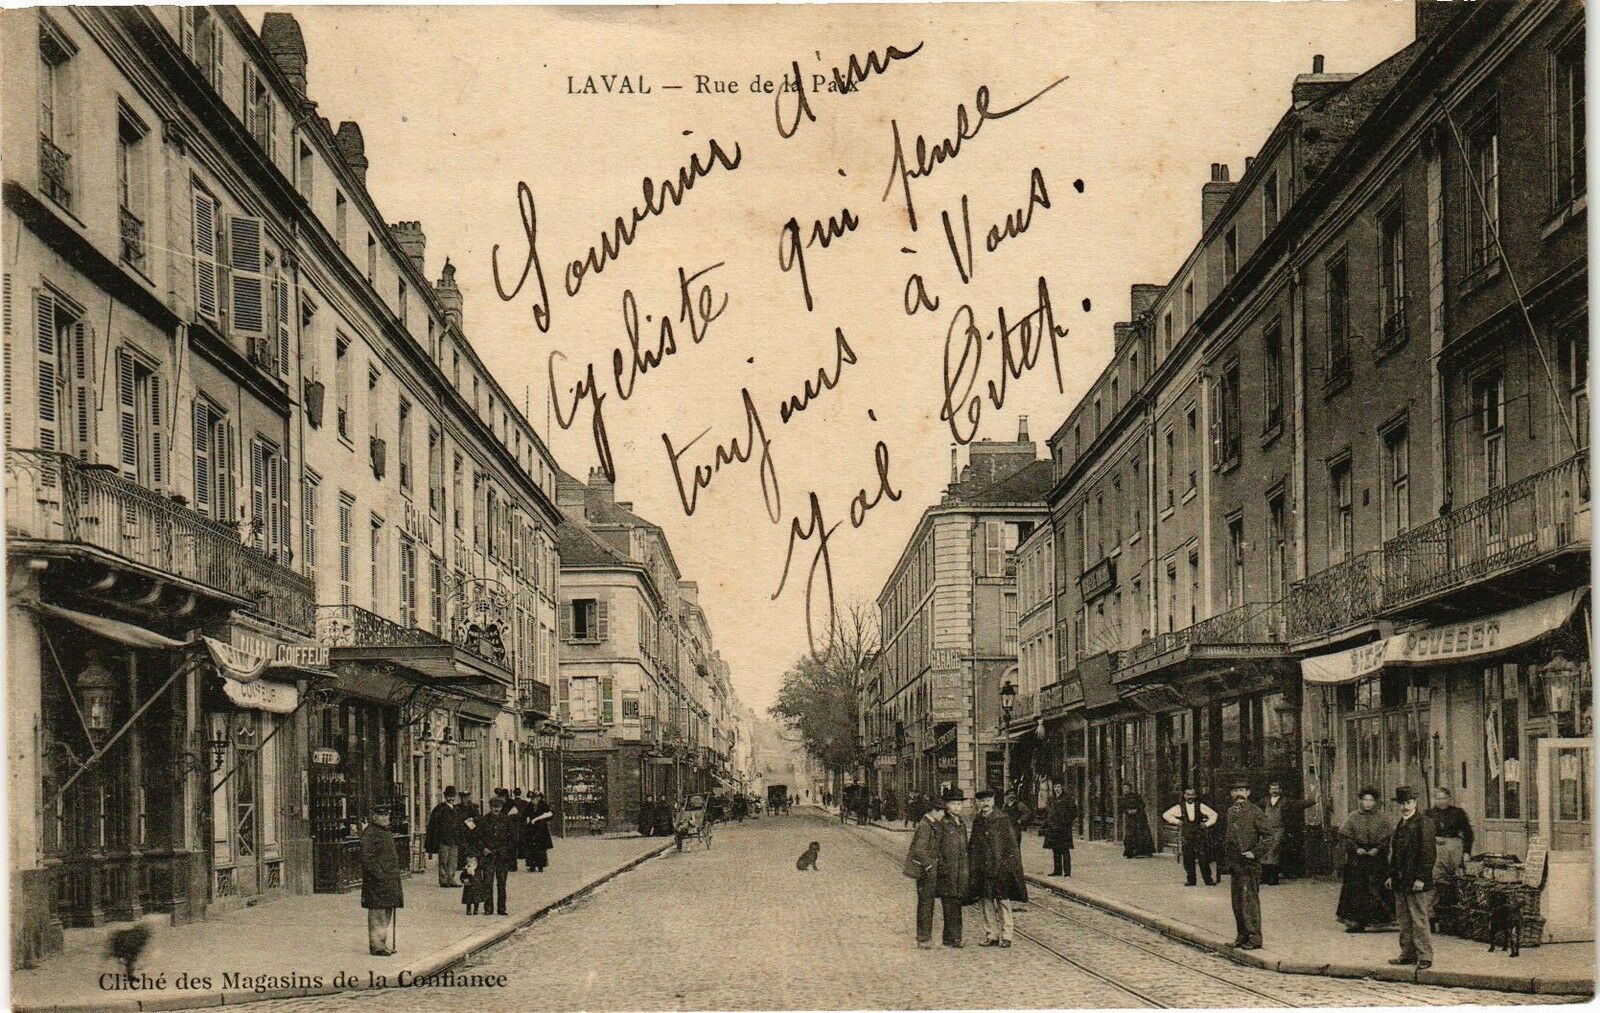 LAVAL — Rue de la Paix
Souvenir d'un
cycliste qui pense
toujours à Vous.
COIFFEUR
COIFFEUR
COIFFEUR
GRAND
GARAGE
GARAGE
POUSSET
Cliché des Magasins de la Confiance